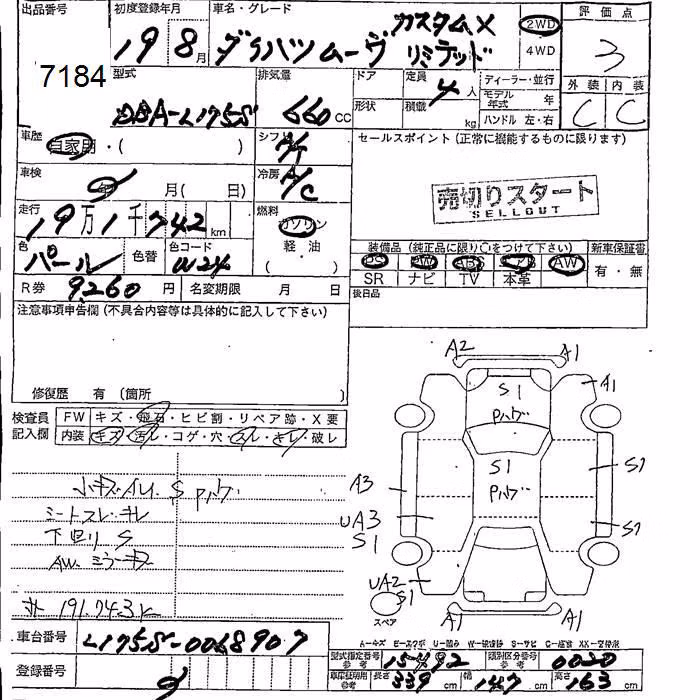 出品番号 初度登録年月 車名・グレード 評価点
7184
19 8月 ダイハツムーヴ カスタムX リミテッド 2WD 4WD 3
型式 排気量 ドア 定員 ディーラー・並行 外装 内装
DBA-L175S 660 CC 形状 積載 4人 kg モデル年式 年 ハンドル 左・右 C C
車歴 自家用・( ) シフト A/T セールスポイント (正常に機能するものに限ります)
車検 年 月( 日) 冷房 A/C
売切りスタート
SELLOUT
走行 19万1千742 km 燃料 ガソリン 軽・油 ( )
色 パール 色替 色コード W24
装備品 (純正品に限り○をつけて下さい) 新車保証書
PS PW ABS エアB AW 有・無
SR ナビ TV 本革
R券 9,260円 名変期限 月 日 後日品
注意事項申告欄 (不具合内容等は具体的に記入して下さい)
修復歴 有 (箇所 )
検査員 FW キズ・飛石・ヒビ割・リペア跡・X要
記入欄 内装 キズ・汚レ・コゲ・穴・スレ・キレ・破レ
シートスレ・キレ
下回り S
AW. ミラーキズ
A2 A1
A1
S1
S1
A3 S1
UA3
S1 S1
UA2
S1
スペア A1 A1
A-キズ E-エクボ U-凹み W-波 S-サビ C-腐食 XX-交換済
車台番号 L175S-0068907
型式指定番号 参考 15492 類別区分番号 参考 0020
登録番号
車庫証明用 参考 長さ 339 cm 幅 147 cm 高さ 163 cm